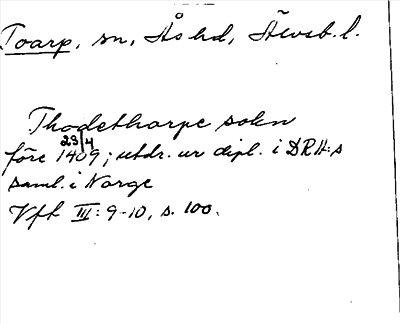 Toarp, sn, Ås hd, Älvsb. l.
Thodethorpe sokn
23/4
före 1409; utdr. ur dipl. i DRH:s
saml. i Norge
Vft III: 9-10, s. 100.